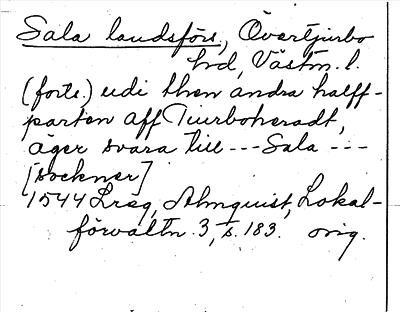 Sala landsförs., Övertjurbo
hd, Västm. l.
(forts.) udi then andra halff-
parten aff Tiurboheradt,
äger svara till --- Sala ---
[sockner]
1544 Lräg, Almquist, Lokal-
förvaltn. 3, s. 183. orig.